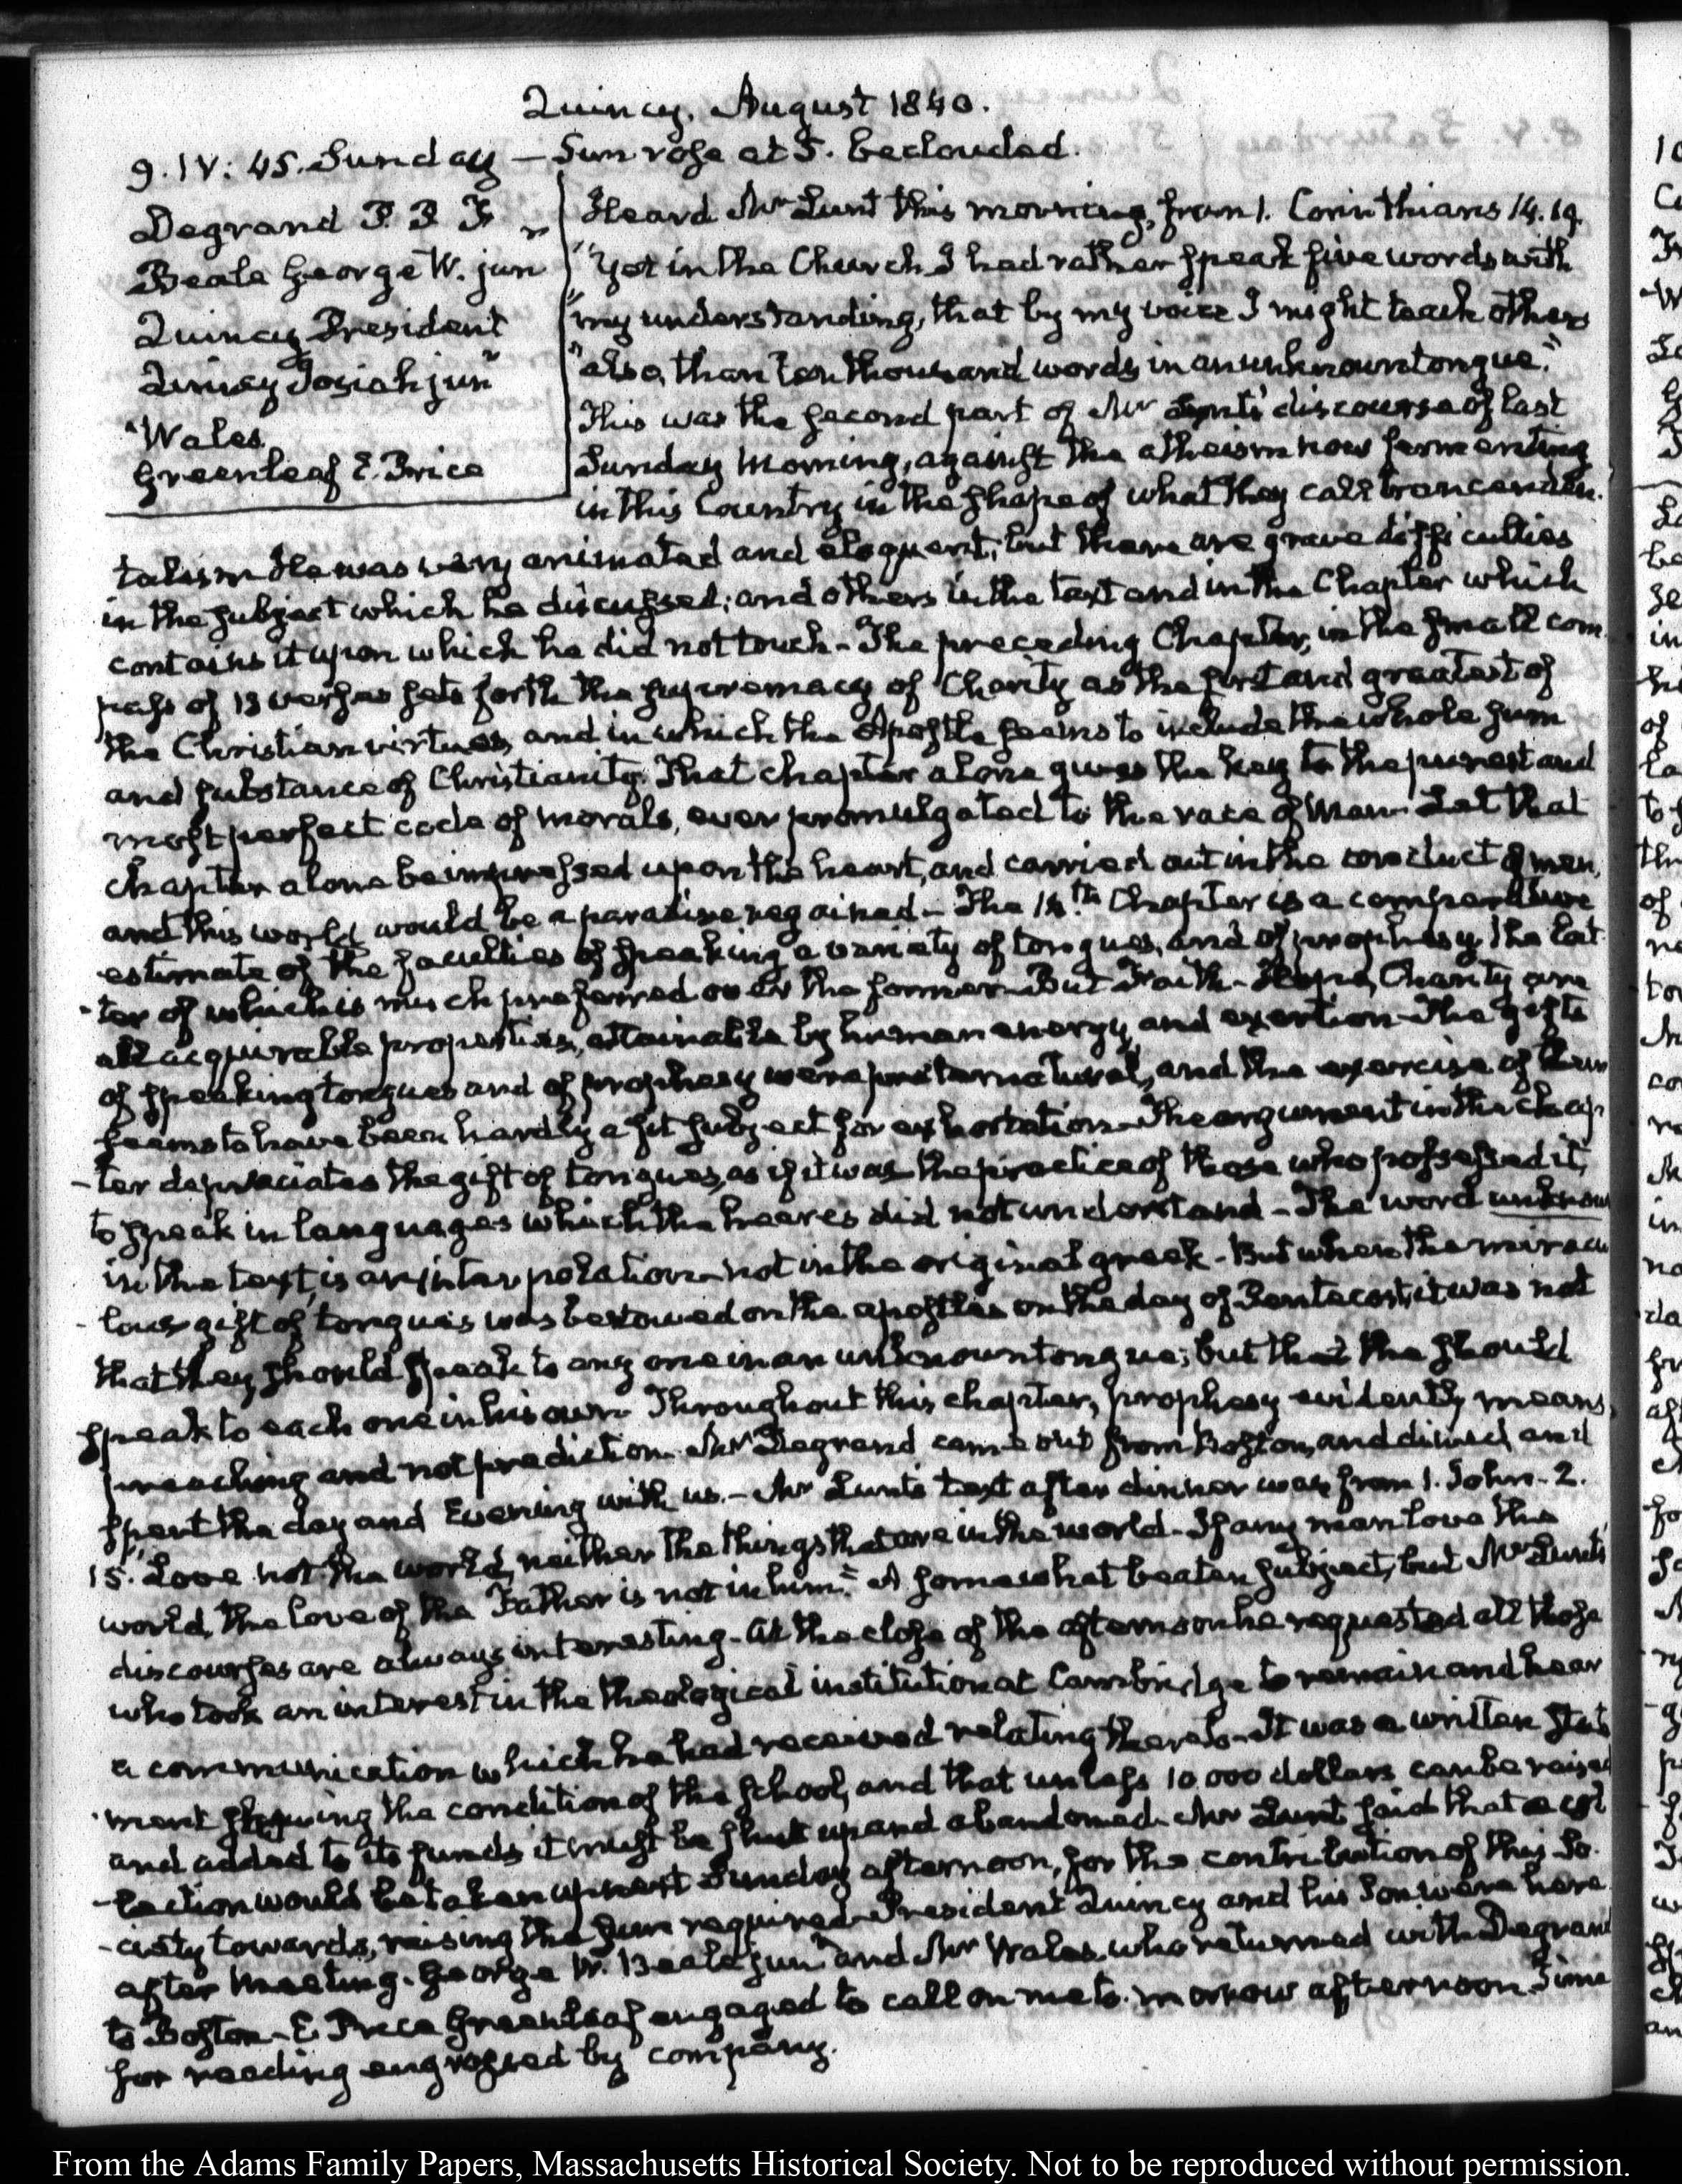 Quincy. August 1840.
9. IV: 45. Sunday — Sun rose at 5. beclouded.
Degrand P. P. F
Beale George W. jun
Quincy President
Quincy Josiah jun
Wales
Greenleaf E. Price
Heard Mr Lunt this morning, from 1. Corinthians 14.19.
"Yet in the Church I had rather speak five words with
"my understanding, that by my voice I might teach others
"also, than ten thousand words in an unknown tongue."
This was the second part of Mr Lunt's discourse of last
Sunday Morning, against the atheism now fermenting
in this Country in the shape of what they call transcenden-
talism He was very animated and eloquent; but there are grave difficulties
in the subject which he discussed; and others in the text and in the Chapter which
contains it upon which he did not touch - The preceding Chapter, in the small com
pass of 13 verses sets forth the supremacy of Charity as the first and greatest of
the Christian virtues, and in which the Apostle seems to include the whole sum
and substance of Christianity. That chapter alone gives the key to the purest and
most perfect code of morals, ever promulgated to the race of Man. Let that
chapter alone be impressed upon the heart, and carried out in the conduct of men,
and this world would be a paradise regained - The 14th Chapter is a comparative
estimate of the faculties of speaking a variety of tongues, and of prophesy, the lat
-ter of which is much preferred over the former - But Faith - Hope, Charity are
all acquirable properties, attainable by human energy, and exertion - The gifts
of speaking tongues and of prophesy were preternatural, and the exercise of them
seems to have been hardly a fit subject for exhortation - The argument in the chap
-ter depreciates the gift of tongues, as if it was the practice of those who possessed it,
to speak in languages which the heares did not understand - The word unknown
in the text, is an interpolation - not in the original greek - But when the miracu
-lous gift of tongues was bestowed on the apostles on the day of Pentecost, it was not
that they should speak to any one in an unknown tongue; but that the should
speak to each one in his own. Throughout this chapter, prophesy evidently means
preaching and not prediction. Mr Degrand came out from Boston, and dined, and
spent the day and Evening with us. - Mr Lunt's text after dinner was from 1. John. 2.
15. Love not the world, neither the things that are in the world. If any man love the
world, the love of the Father is not in him." A somewhat beaten subject, but Mr Lunt's
discourses are always interesting. At the close of the afternoon he requested all those
who took an interest in the theological institution at Cambridge to remain and hear
a communication which he had received relating thereto - It was a written state
-ment shewing the condition of the school, and that unless 10.000 dollars can be raised
and added to its funds it must be shut up and abandoned. Mr Lunt said that a col
-lection would be taken up next Sunday afternoon, for the contribution of this So-
-ciety towards, raising the sum required - President Quincy and his Son were here
after Meeting. George W. Beale jun and Mr Wales, who returned with Degrand
to Boston - E. Price Greenleaf engaged to call on me to-morrow afternoon. Time
for reading engrossed by company.
From the Adams Family Papers, Massachusetts Historical Society. Not to be reproduced without permission.